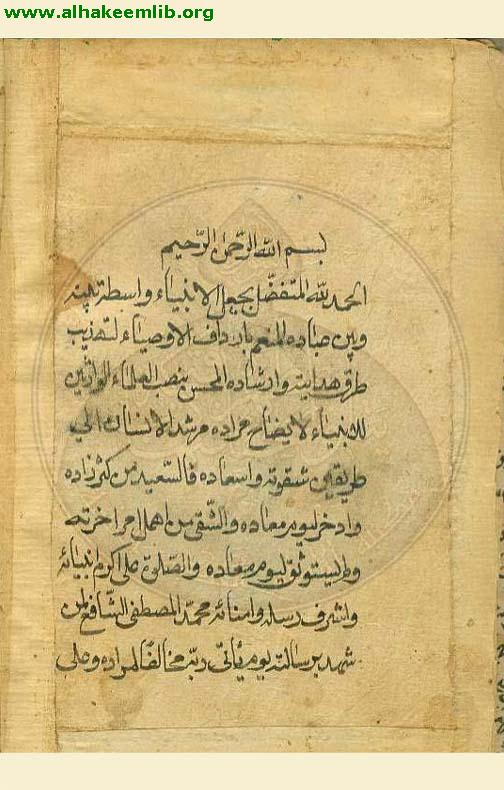 www.alhakeemlib.org
بسم الله الرحمن الرحيم
الحمد لله المتفضل بجعل الانبياء واسطة بينه
وبين عباده المنعم بارداف الاوصياء لتهذيب
طرق هدايته وارشاده المحسن بنصب العلماء الوارثين
للانبياء لايضاح مراده مرشد الانسان الى
طريقين شقوته واسعاده فالسعيد من كثر زاده
وادخر ليوم معاده والشقي من اهمل امر اخرته
ليوم معاده والصلوة على اكرم انبيائه
واشرف رسله وامنائه محمد المصطفى الشافع لمن
شهد برسالته يوم ياتى ربه مخالفا لمراده وعلى